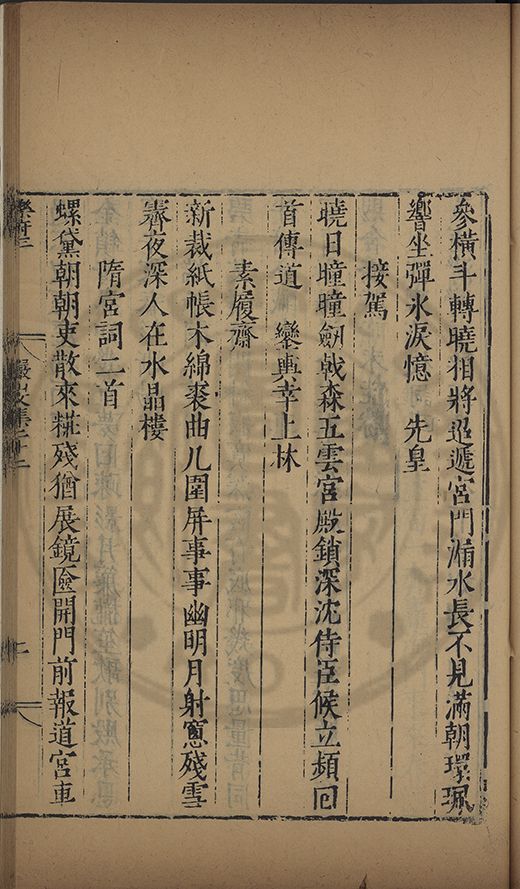 參橫斗轉曉相將迢遞宮門漏水長不見滿朝環珮
響坐彈氷淚憶　先皇
接駕
曉日曈曈劒戟森五雲宮殿鎖深沈侍臣候立頻回
首傳道　鑾輿幸上林
素履齋
新裁紙帳木綿裘曲几圍屏事事幽明月射窻殘雪
霽夜深人在水晶樓
隋宮詞二首
螺黛朝朝吏散來糚殘猶展鏡匳開門前報道宮車